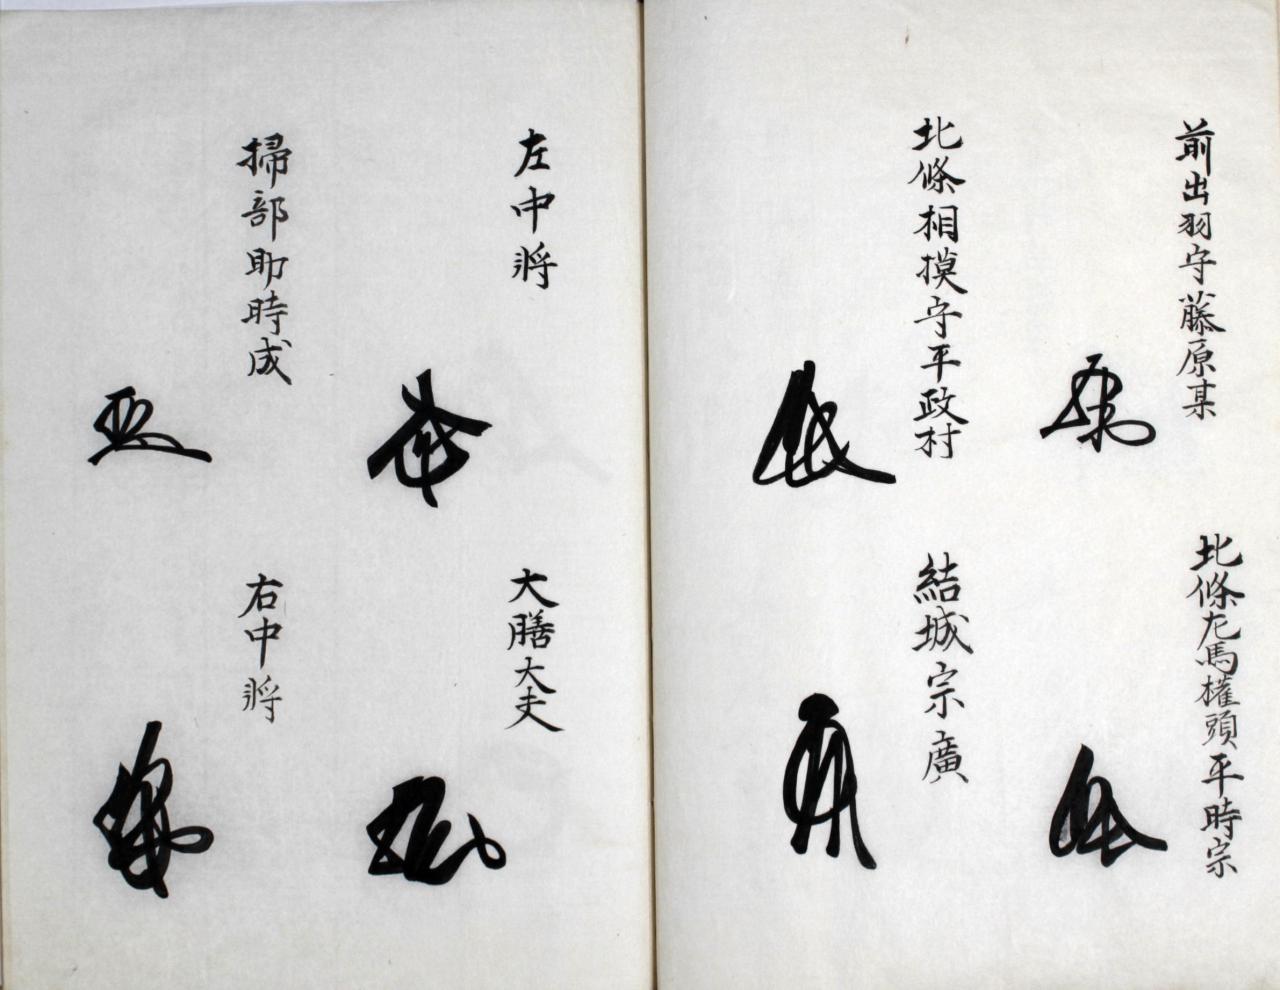 前出羽守藤原某
北條左馬權頭平時宗
北條相摸守平政村
結城宗廣
左中將
大膳大夫
掃部助時成
右中將